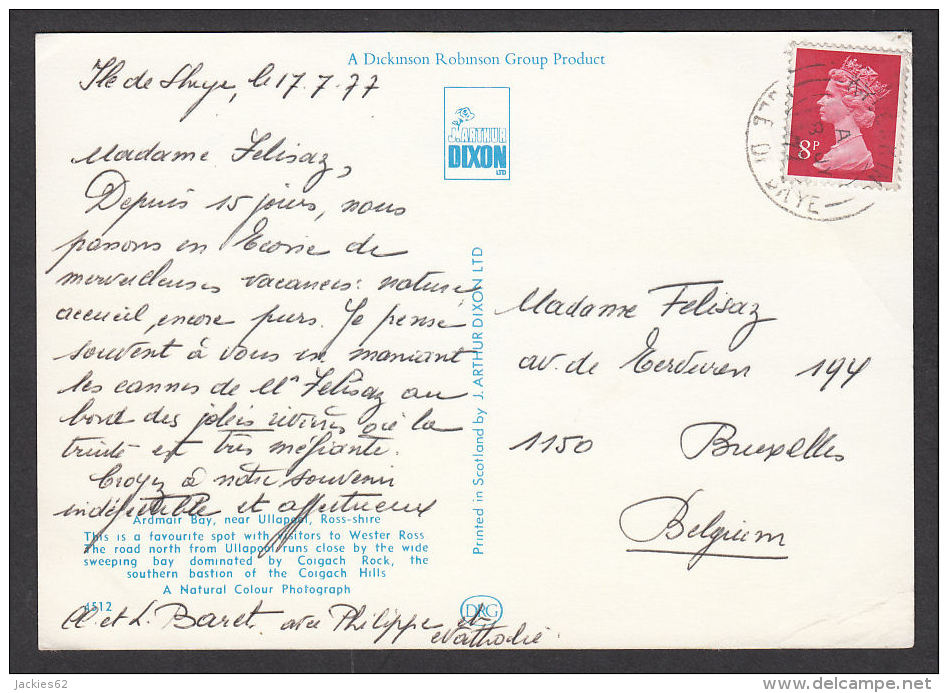 A Dickinson Robinson Group Product
Ile de Skye, le 17.7.77
J. ARTHUR
DIXON
LTD
8P
Madame Felisaz,
Depuis 15 jours, nous
passons en Ecosse de
merveilleuses vacances: nature,
accueil, encore purs. Je pense
souvent à vous en maniant
les cannes de Mr Felisaz au
bord des jolies rivières où la
truite est très méfiante.
Croyez à notre souvenir
indéfectible et affectueux
Ardmair Bay, near Ullapool, Ross-shire
This is a favourite spot with visitors to Wester Ross
The road north from Ullapool runs close by the wide
sweeping bay dominated by Coigach Rock, the
southern bastion of the Coigach Hills
A Natural Colour Photograph
4512
A et L. Baret. avec Philippe et
Nathalie
Printed in Scotland by J. ARTHUR DIXON LTD
DRG
Madame Felisaz
av. de Tervuren 194
1150 Bruxelles
Belgium
jackies62
www.delcampe.net